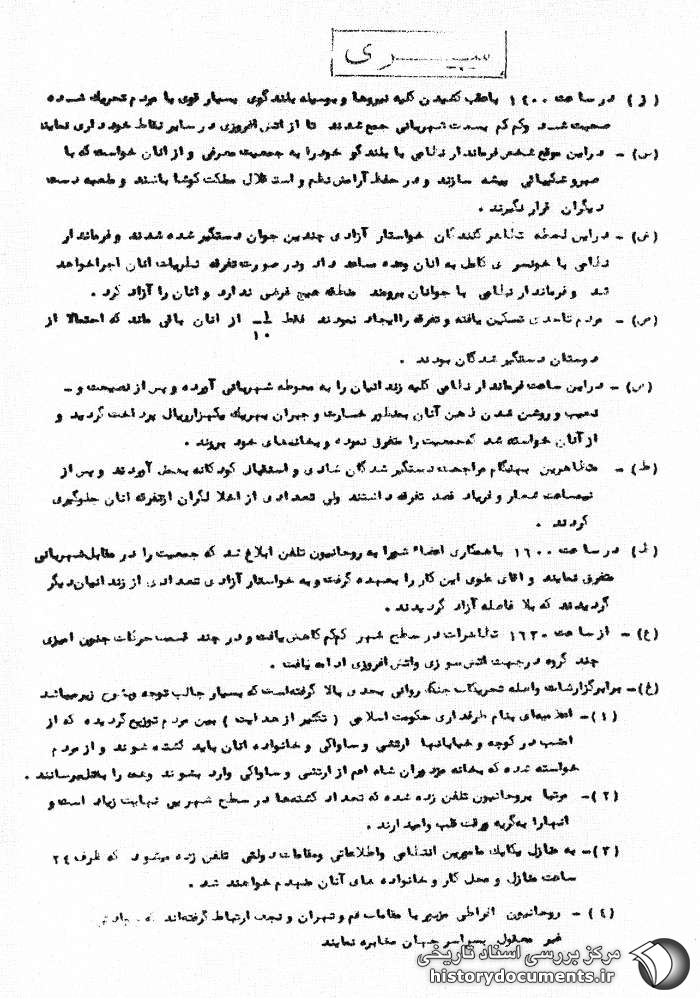 سری
(ز) در ساعت ۱۴۰۰ باعقب کشیدن کلیه نیروها و بوسیله بلندگوی بسیار قوی با مردم تحریک شده
صحبت شد و کم کم بسمت شهربانی جمع شدند تا از آتش افروزی در سایر نقاط خودداری نمایند
(س) - در این موقع شخص فرماندار نظامی با بلندگو خود را به جمعیت معرفی و از آنان خواست که با
صبر و شکیبائی پیشه سازند و در حفظ آرامش نظم و استقلال مملکت کوشا باشند و طعمه دست
دیگران قرار نگیرند .
(ش) - در این لحظه تظاهر کنندگان خواستار آزادی چندین جوان دستگیر شده شدند و فرماندار
نظامی با خونسردی کامل به آنان وعده مساعد داد و در صورت تفرقه نظریات آنان اجرا خواهد
شد و فرماندار نظامی با جوانان برومند منطقه هیچ غرضی ندارد و آنان را آزاد کرد .
(ص) - مردم تاحدی تسکین یافته و تفرقه را ایجاد نمودند فقط ۱/۱۰ از آنان باقی ماند که احتمالا از
دوستان دستگیر شدگان بودند .
(ض) - در این ساعت فرماندار نظامی کلیه زندانیان را به محوطه شهربانی آورده و پس از نصیحت و -
تحبیب و روشن شدن ذهن آنان بمنظور خسارت و جبران بهریک یکهزار ریال پرداخت گردید و
از آنان خواسته شد که جمعیت را متفرق نموده و بخانه‌های خود بروند .
(ط) - متظاهرین بهنگام مراجعت دستگیر شدگان شادی و استقبال کودکانه بعمل آوردند و پس از
نیمساعت شعار و فریاد قصد تفرقه داشتند ولی تعدادی از اخلالگران از تفرقه آنان جلوگیری
کردند .
(ظ) در ساعت ۱۶۰۰ باهمکاری اعضاء شورا به روحانیون تلفن ابلاغ شد که جمعیت را در مقابل شهربانی
متفرق نمایند و آقای علوی این کار را بعهده گرفت و به خواستار آزادی تعدادی از زندانیان دیگر
گردیدند که بلا فاصله آزاد گردیدند .
(ع) - از ساعت ۱۶۳۰ تظاهرات در سطح شهر کم‌کم کاهش یافت و در چند قسمت حرکات جنون آمیزی
چند گروه در جهت آتش سوزی و آتش افروزی ادامه یافت .
(غ) - برابر گزارشات واصله تحریکات جنگ روانی بحدی بالا گرفته‌است که بسیار جالب توجه و بشرح زیر میباشد
(۱) - اعلامیه‌ای بنام طرفداری حکومت اسلامی (تکثیر از هدایت) بین مردم توزیع گردیده که از
امشب در کوچه و خیابانها ارتشی و ساواکی و خانواده آنان باید کشته شوند و از مردم
خواسته شده که بخانه مزدوران شاه اعم از ارتشی و ساواکی وارد بشوند و همه را بقتل برسانند .
(۲) - مرتبا بروحانیون تلفن زده شده که تعداد کشته‌ها در سطح شهر بی نهایت زیاد است و
آنها را به‌گریه و رقت قلب وامیدارند .
(۳) - به منازل یکایک مامورین انتظامی و اطلاعاتی و مقامات دولتی تلفن زده میشود که ظرف ۲۴
ساعت منازل و محل کار و خانواده های آنان منهدم خواهند شد .
(۴) - روحانیون افراطی مزبور با مقامات قم و تهران و نجف ارتباط گرفته‌اند که
غیر معقول بسراسر جهان مخابره نمایند
مرکز بررسی اسناد تاریخی
historydocuments.ir